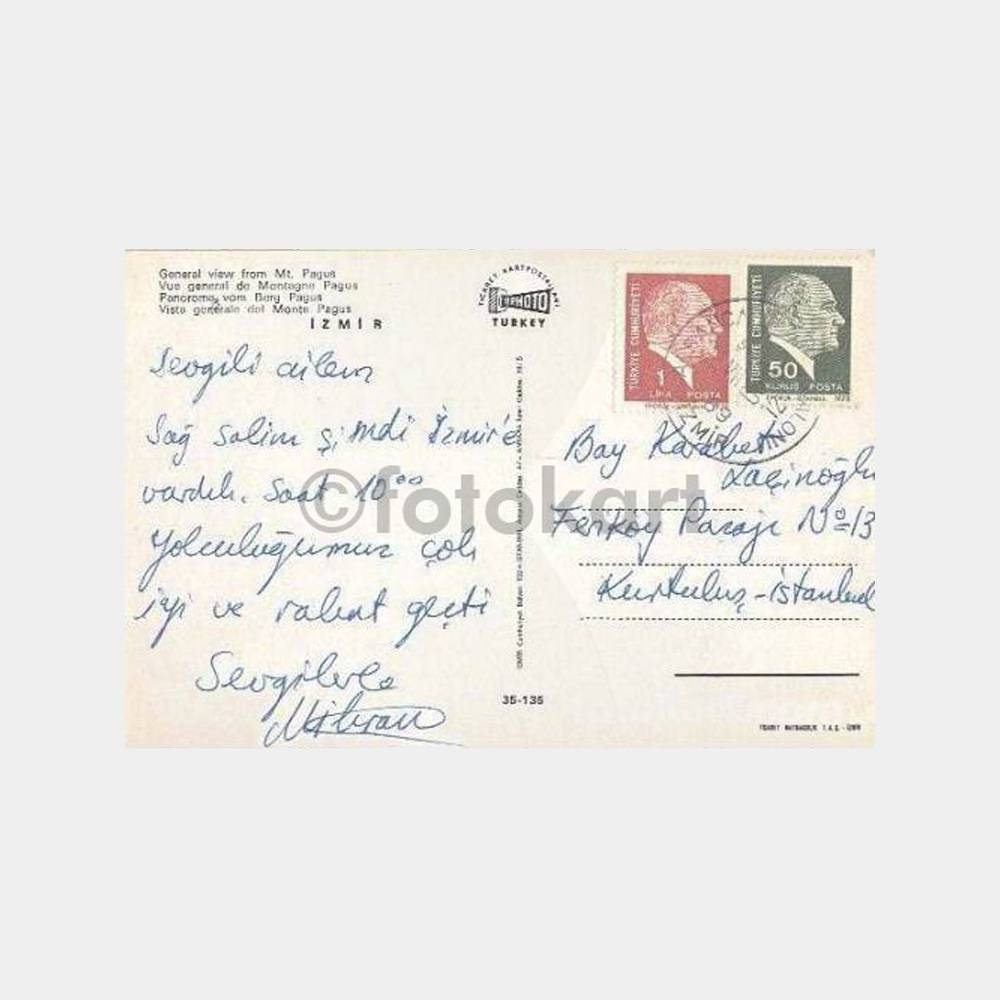 General view from Mt. Pagus
Vue general de Montagne Pagus
Panorama vom Berg Pagus
Vista generale del Monte Pagus
İZMİR
TİCARET KARTPOSTALLARI
TURKEY
TÜRKİYE CUMHURİYETİ
1
LİRA POSTA
TÜRKİYE CUMHURİYETİ
50
KURUŞ POSTA
İZMİR
Sevgili ailem
Sağ salim şimdi İzmir'e
vardık. Saat 10⁰⁰
Yolculuğumuz çok
iyi ve rahat geçti
Sevgilerle
Mihran
Bay Karabet
Laçinoğlu
Feriköy Pasajı Nº 13
Kurtuluş - İstanbul
35-135
©fotokart